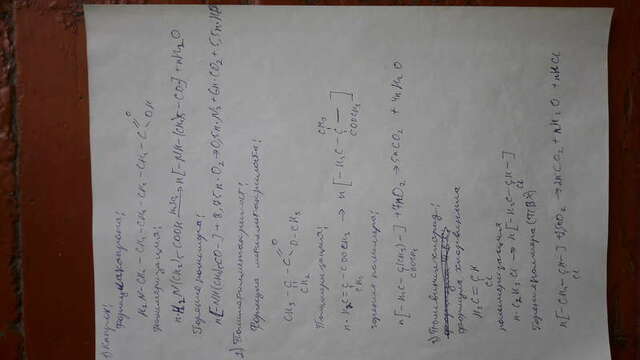 1) Капрон:
Формула капрона:
H₂N-CH₂-CH₂-CH₂-CH₂-CH₂-C
O
OH
Полимеризация:
n·H₂N(CH₂)₅COOH → n[-NH-(CH₂)5-CO-] + nH₂O
Горение полимера:
n[-NH(CH₂)5CO-] + 8,75n·O₂ → 0,5n·N₂ + 6n·CO₂ + 5,5n·H₂O
2) Полиметилметакрилат:
Формула метилметакрилата:
O
CH₃-C-C
O-CH₃
CH₂
Полимеризация:
CH₃
n·H₂C=C-COOCH₃ → n[-H₂C-C-]
CH₃ COOCH₃
горение полимера:
n[-H₂C-C(CH₃)-] + 7nO₂ → 5nCO₂ + 4nH₂O
COOCH₃
3) Поливинилхлорид:
формула хлорвинила
H₂C=CH
Cl
полимеризация
n·C₂H₃Cl → n[-H₂C-CH-]
Cl
Горение полимера (ПВХ)
n[-CH₂-CH-] + 2,5nO₂ → 2nCO₂ + nH₂O + nHCl
Cl